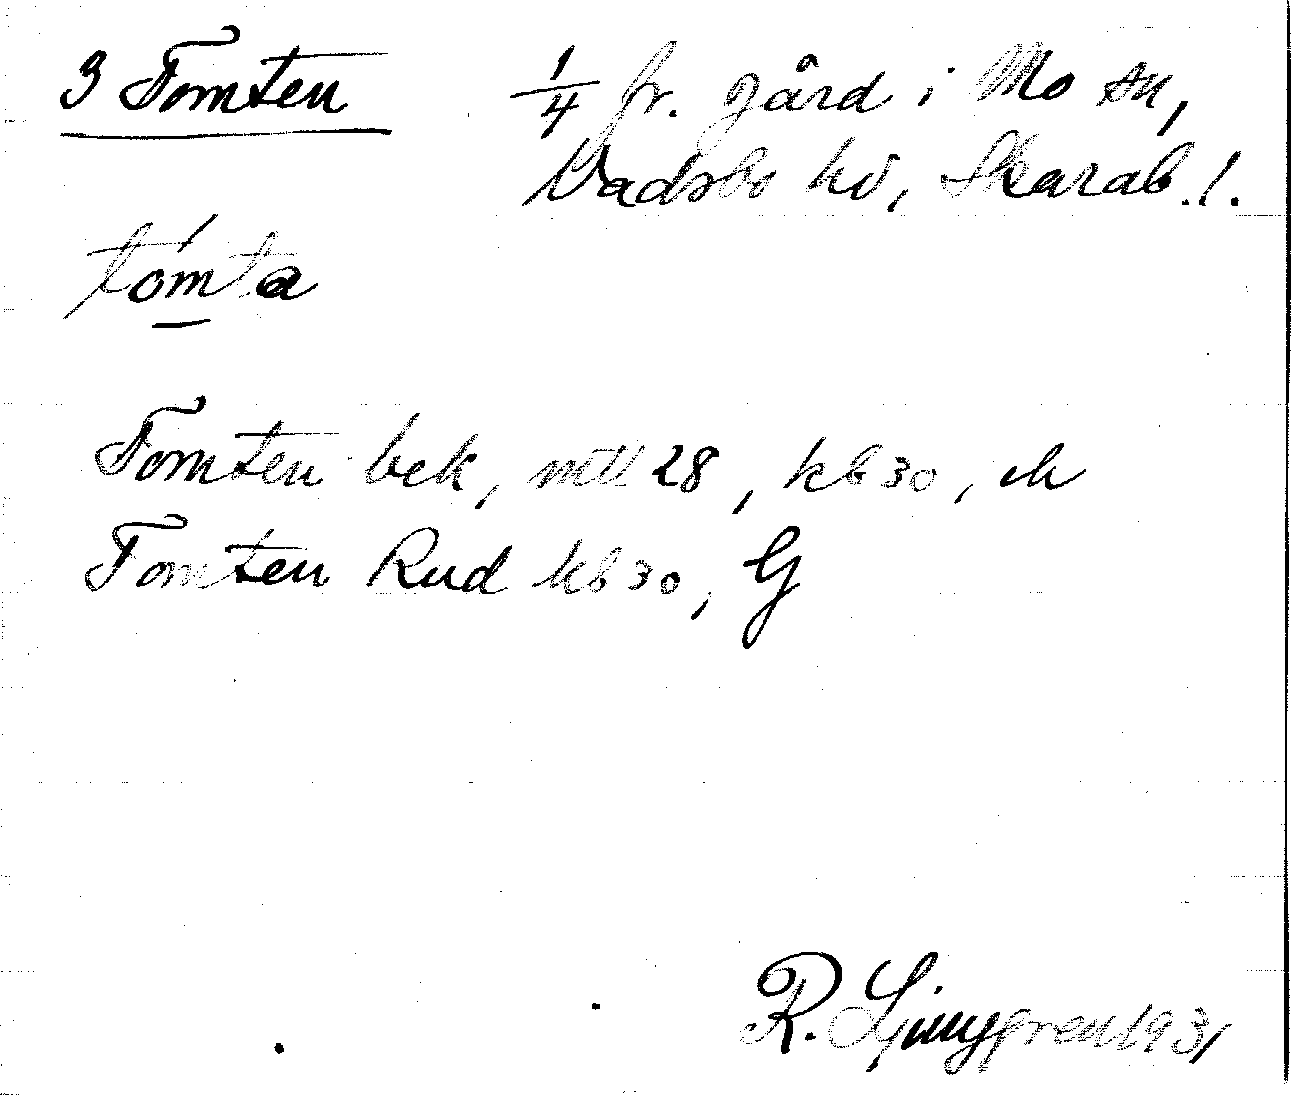 3 Tomten
1/4 fr. gård i Mo sn,
Vadsbo hd, Skarab. l.
tómta
Tomten bek, mtl 28, kb 30, ch
Tomten Rud kb 30, G
R. Ljunggren 1931